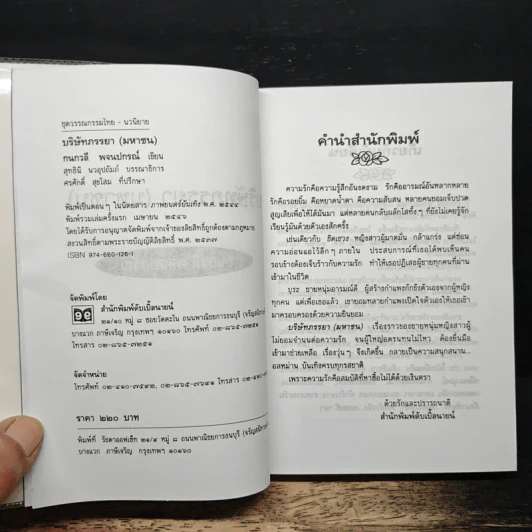 ชุดวรรณกรรมไทย - นวนิยาย
บริษัทภรรยา (มหาชน)
กนกวลี พจนปกรณ์ เขียน
สุทธินี นวอุปถัมภ์ บรรณาธิการ
ครศักดิ์ สุขโสม ที่ปรึกษา
พิมพ์เป็นตอนๆ ในนิตยสาร ภาพยนตร์บันเทิง พ.ศ. ๒๕๔๔
พิมพ์รวมเล่มครั้งแรก เมษายน ๒๕๔๖
โดยได้รับการอนุญาตจัดพิมพ์จากเจ้าของลิขสิทธิ์ถูกต้องตามกฎหมาย
สงวนลิขสิทธิ์ตามพระราชบัญญัติลิขสิทธิ์ พ.ศ. ๒๕๓๗
ISBN 974-660-126-1
จัดพิมพ์โดย
สำนักพิมพ์ดับเบิ้ลนายน์
๒๑/๑๐ หมู่ ๘ ซอยวัดตะโน ถนนพาณิชยการธนบุรี
บางแวก ภาษีเจริญ กรุงเทพฯ ๑๐๑๖๐ โทร ๐๒-๘๖๕-
โทรสาร ๐๒-๘๖๕-๗๒๕๑
จัดจำหน่าย
โทรศัพท์ ๐๒-๔๑๐-๗๕๙๒, ๐๒-๘๖๕-๗๖๙๑ โทรสาร ๐๒-
ราคา ๒๒๐ บาท
พิมพ์ที่ รัชดาออฟเซ็ท ๒๑/๙ หมู่ ๘ ถนนพาณิชยการธนบุรี
บางแวก ภาษีเจริญ กรุงเทพฯ ๑๐๑๖๐
คำนำสำนักพิมพ์
ความรักคือความรู้สึกอันงดงาม รักคืออารมณ์อันหลากหลาย
รักคือรอยยิ้ม คือหยาดน้ำตา คือความสับสน หลายคนยอมเจ็บปวด
สูญเสียเพื่อให้ได้มันมา แต่หลายคนกลับผลักไสทิ้งๆ ที่ยังไม่เคยรู้จัก
เรียนรู้มันด้วยตัวเองสักครั้ง
เช่นเดียวกับ หญิงสาวผู้มาดมั่น กล้าแกร่ง แต่ซ่อน
ความอ่อนแอไว้ลึกๆ ภายใน ประสบการณ์ที่เธอได้พบเห็นคน
รอบข้างต้องเจ็บร้าวกับความรัก ทำให้เธอปฏิเสธผู้ชายทุกคนที่ผ่าน
เข้ามาในชีวิต
บุระ ชายหนุ่มอารมณ์ดี ผู้สร้างกำแพงกักขังตัวเองจากผู้หญิง
ทุกคน แต่เพื่อเธอแล้ว เขายอมทลายกำแพงเปิดใจตัวเองให้เธอเข้า
มาครอบครองด้วยความยินยอม
บริษัทภรรยา (มหาชน) เรื่องราวของชายหนุ่มหญิงสาวผู้
ไม่ยอมจำนนต่อความรัก จนผู้ใหญ่อดรนทนไม่ไหว ต้องยื่นมือ
เข้ามาช่วยเหลือ เรื่องวุ่นๆ จึงเกิดขึ้น กลายเป็นความสนุกสนาน...
อลหม่าน บันเทิงครบทุกรสชาติ
เพราะความรักคือสมบัติที่หาซื้อไม่ได้ด้วยเงินตรา
ด้วยรักและปรารถนาดี
สำนักพิมพ์ดับเบิ้ลนายน์